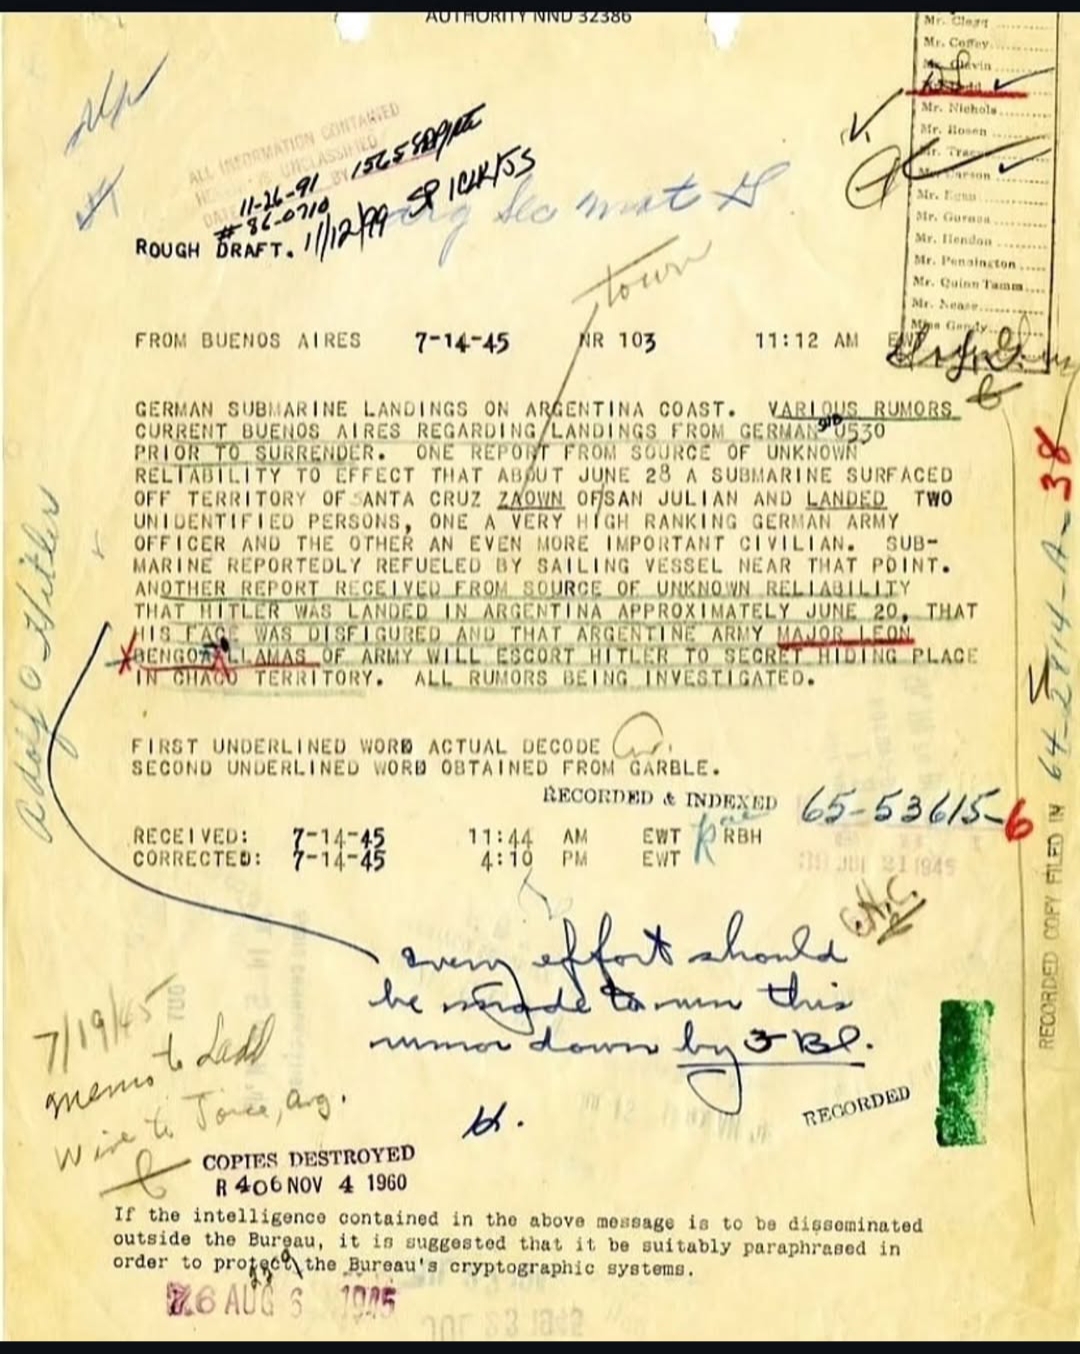 AUTHORITY NND 32386
Mr. Clegg
Mr. Coffey
Mr. Glavin
Mr. Ladd
Mr. Nichols
Mr. Rosen
Mr. Tracy
Mr. Carson
Mr. Egan
Mr. Gurnea
Mr. Hendon
Mr. Pennington
Mr. Quinn Tamm
Mr. Nease
Miss Gandy
ALL INFORMATION CONTAINED
UNCLASSIFIED
DATE 11-26-91 BY
#86-0710
11/12/99
ROUGH DRAFT.
town
FROM BUENOS AIRES 7-14-45 NR 103 11:12 AM
GERMAN SUBMARINE LANDINGS ON ARGENTINA COAST. VARIOUS RUMORS
CURRENT BUENOS AIRES REGARDING LANDINGS FROM GERMAN SUB U530
PRIOR TO SURRENDER. ONE REPORT FROM SOURCE OF UNKNOWN
RELIABILITY TO EFFECT THAT ABOUT JUNE 28 A SUBMARINE SURFACED
OFF TERRITORY OF SANTA CRUZ ZAOWN OF SAN JULIAN AND LANDED TWO
UNIDENTIFIED PERSONS, ONE A VERY HIGH RANKING GERMAN ARMY
OFFICER AND THE OTHER AN EVEN MORE IMPORTANT CIVILIAN. SUB-
MARINE REPORTEDLY REFUELED BY SAILING VESSEL NEAR THAT POINT.
ANOTHER REPORT RECEIVED FROM SOURCE OF UNKNOWN RELIABILITY
THAT HITLER WAS LANDED IN ARGENTINA APPROXIMATELY JUNE 20, THAT
HIS FACE WAS DISFIGURED AND THAT ARGENTINE ARMY MAJOR LEON
BENGOA LLAMAS OF ARMY WILL ESCORT HITLER TO SECRET HIDING PLACE
IN CHACO TERRITORY. ALL RUMORS BEING INVESTIGATED.
Adolf Hitler
FIRST UNDERLINED WORD ACTUAL DECODE
SECOND UNDERLINED WORD OBTAINED FROM GARBLE.
RECORDED & INDEXED 65-53615-6
RECEIVED: 7-14-45 11:44 AM EWT RBH
CORRECTED: 7-14-45 4:10 PM EWT
JUL 21 1945
RECORDED COPY FILED IN 64-2814-A-38
every effort should
be made to run this
rumor down by FBI.
H.
7/19/45
memo to Ladd
Wire to Joice, Arg.
RECORDED
COPIES DESTROYED
R 406 NOV 4 1960
If the intelligence contained in the above message is to be disseminated
outside the Bureau, it is suggested that it be suitably paraphrased in
order to protect the Bureau's cryptographic systems.
76 AUG 6 1945